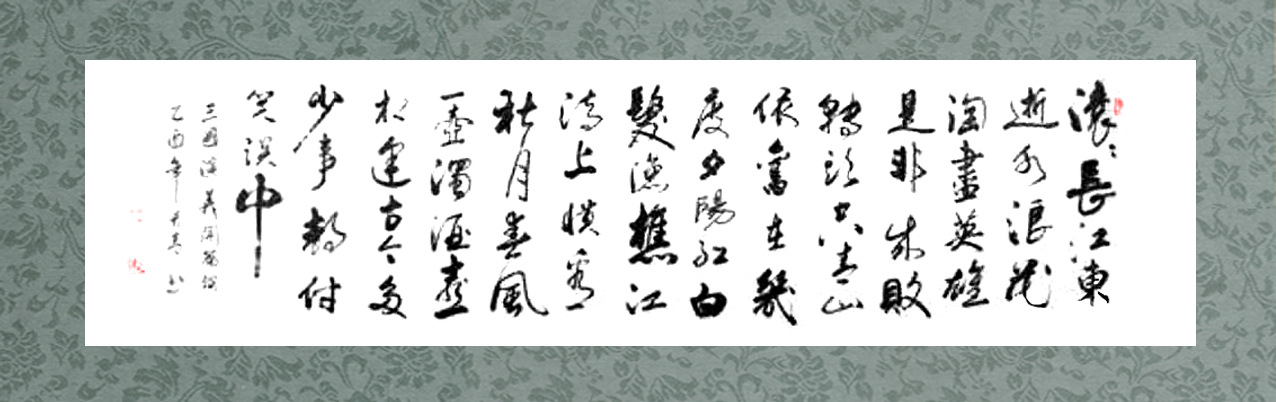 滾〻長江東
逝水浪花
淘盡英雄
是非成敗
轉頭空青山
依舊在幾
度夕陽紅白
髮漁樵江
渚上慣看
秋月春風
一壺濁酒喜
相逢古今多
少事都付
笑談中
三國演義開篇詞
乙酉年